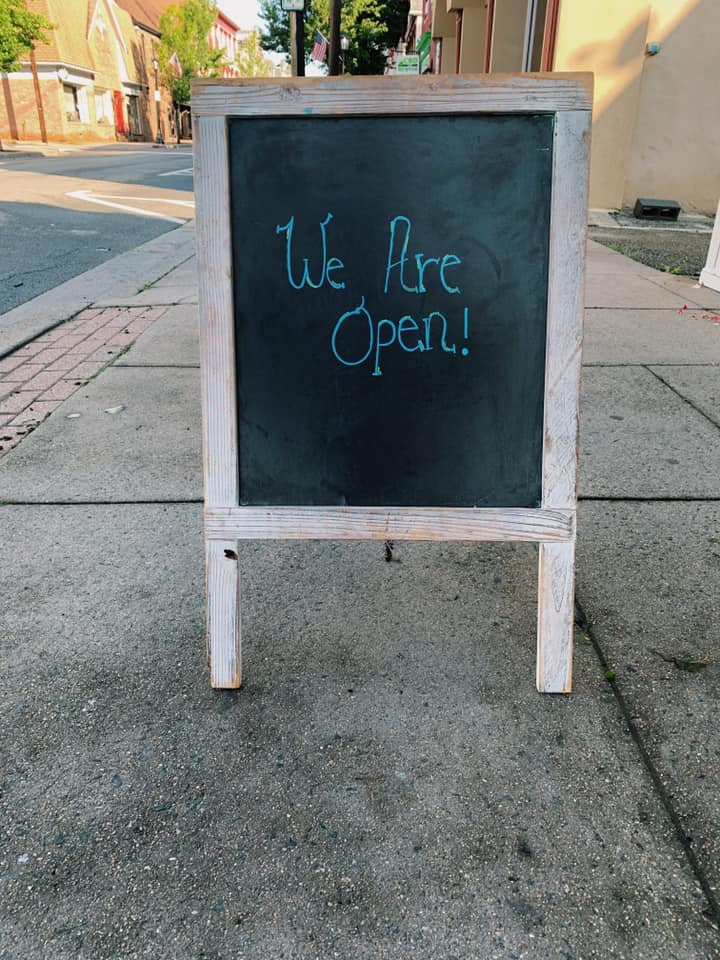 We Are
Open!